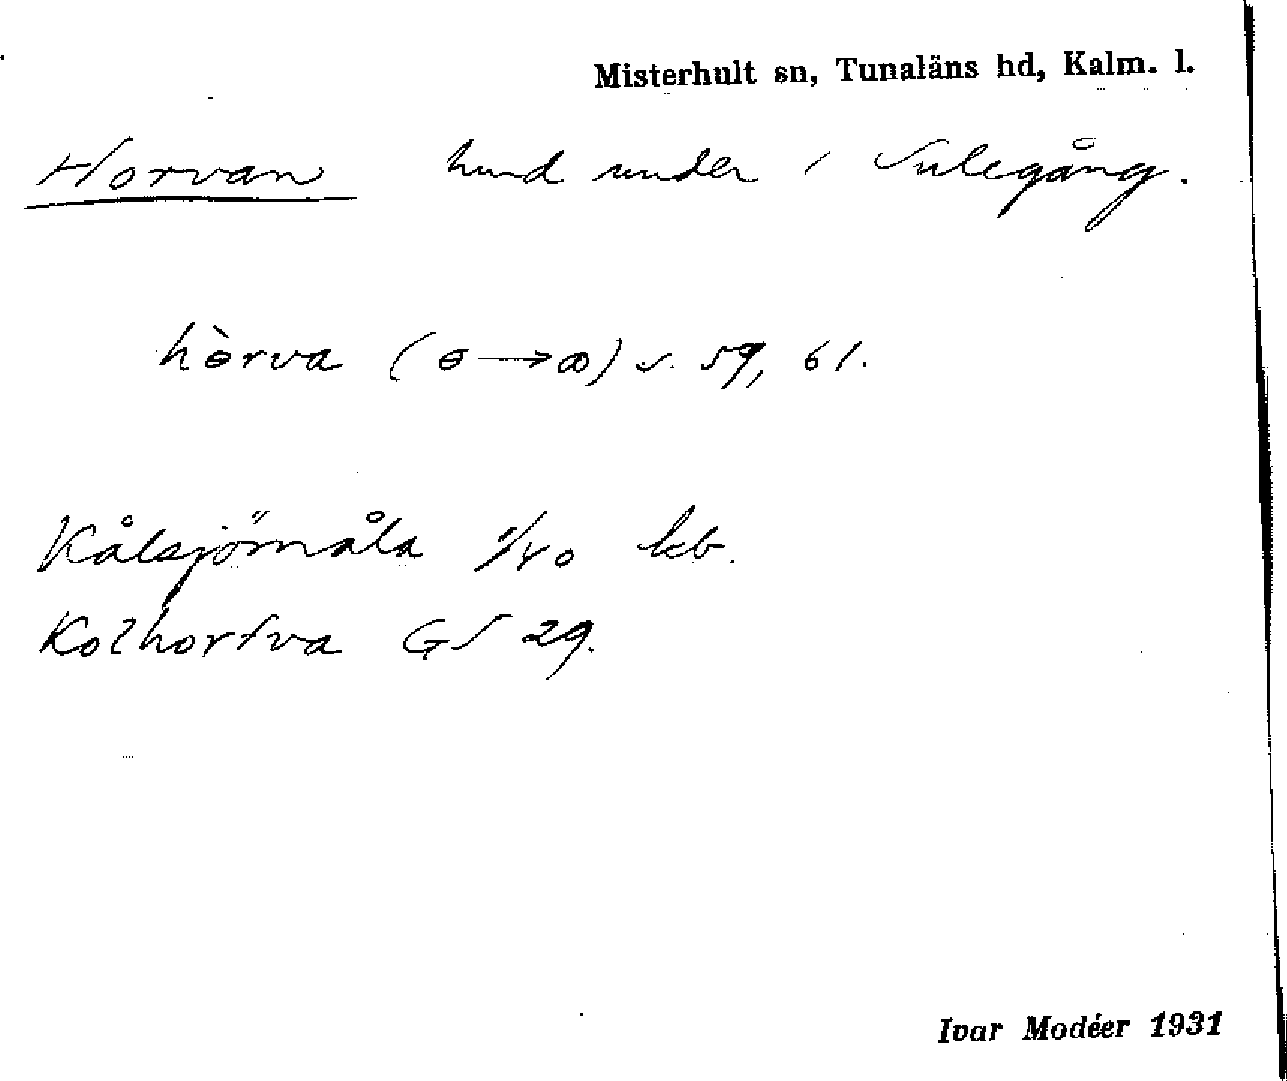 Misterhult sn, Tunaläns hd, Kalm. l.
Horvan hmd under 1 Sulegång.
hɵ̀rva (ɵ→ꝏ) s. 59, 61.
Kålsjömåla 1/40 kb.
Kolhorfva GS 29.
Ivar Modéer 1931